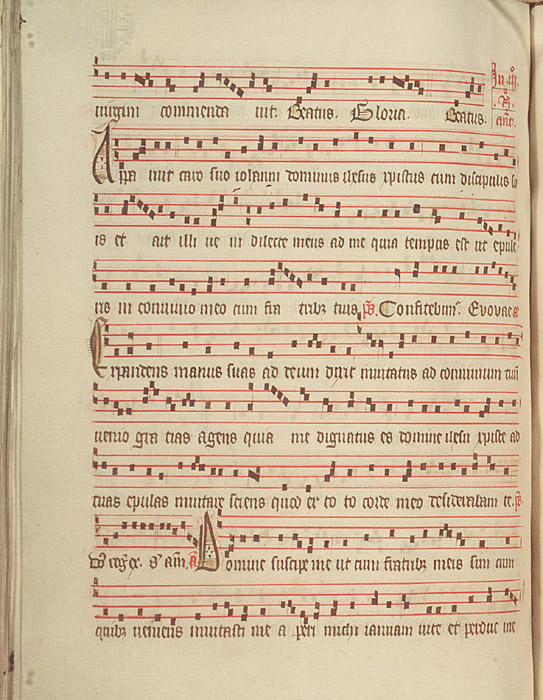 virgini commenda vit. Beatus. Gloria. Beatus.
In iij.
añt.
Appa ruit caro suo iohanni dominus ihesus xpistus cum discipulis su
is et ait illi ve ni dilecte meus ad me quia tempus est ut epule
ris in convivio meo cum fra tribz tuis ps. Confitebimr. Evovae
Expandens manus suas ad deum dixit invitatus ad convivium tuum
venio gra tias agens quia me dignatus es domine ihesu xpiste ad
tuas epulas invitare sciens quod ex to to corde meo desiderabam te. ps.
Domine suscipe me ut cum fratribz meis sim cum
quibz veniens invitasti me a peri michi ianuam vite et perduc me